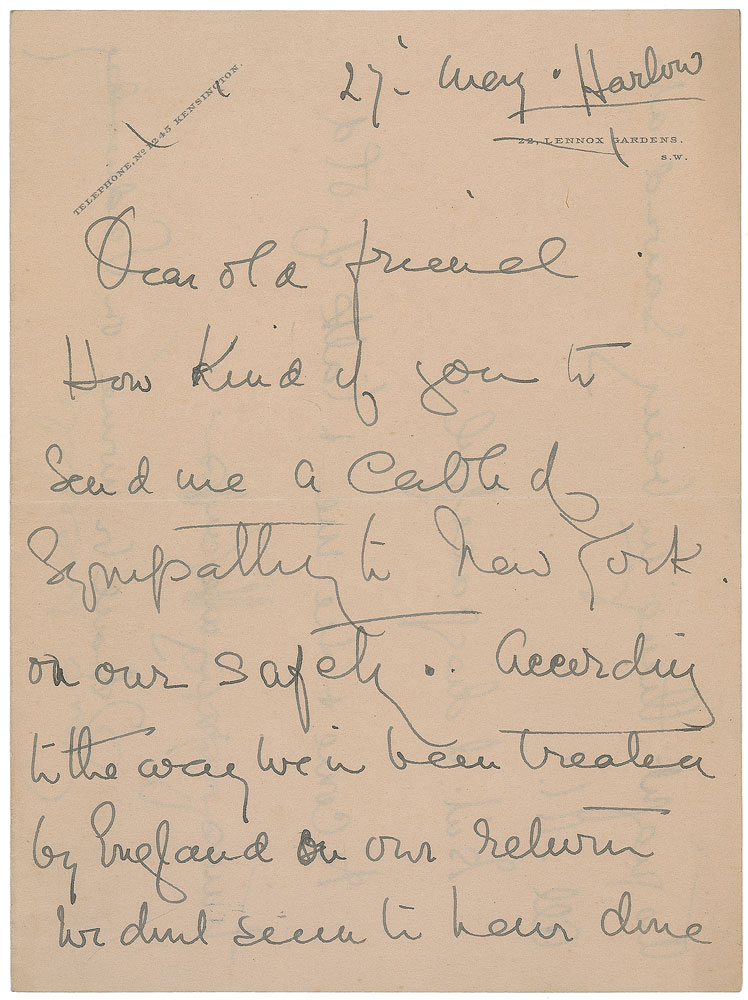 TELEPHONE, Nº 1245 KENSINGTON.
27- May. Harlow
22, LENNOX GARDENS.
S.W.
Dear old friend.
How Kind of you to
send me a Cable of
Sympathy to New York.
on our safety.. According
to the way we'v been treated
by England on our return
we dont seem to have done